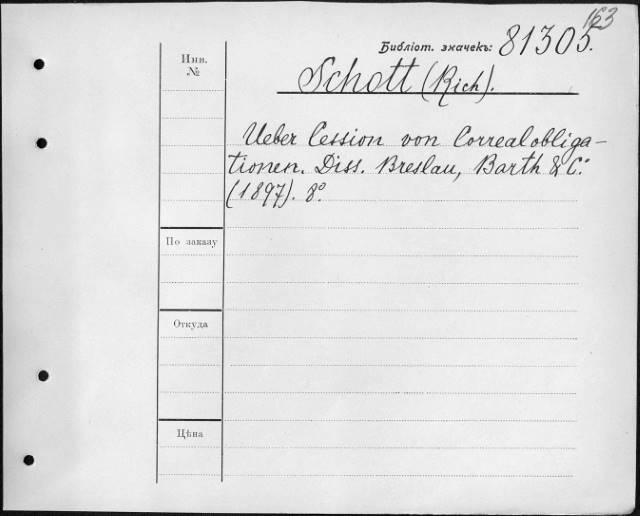 163
Библіот. значекъ: 81305.
Инв.
№
Schott (Rich).
Ueber Cession von Correalobliga-
tionen. Diss. Breslau, Barth & C°.
(1897). 8°.
По заказу
Откуда
Цѣна